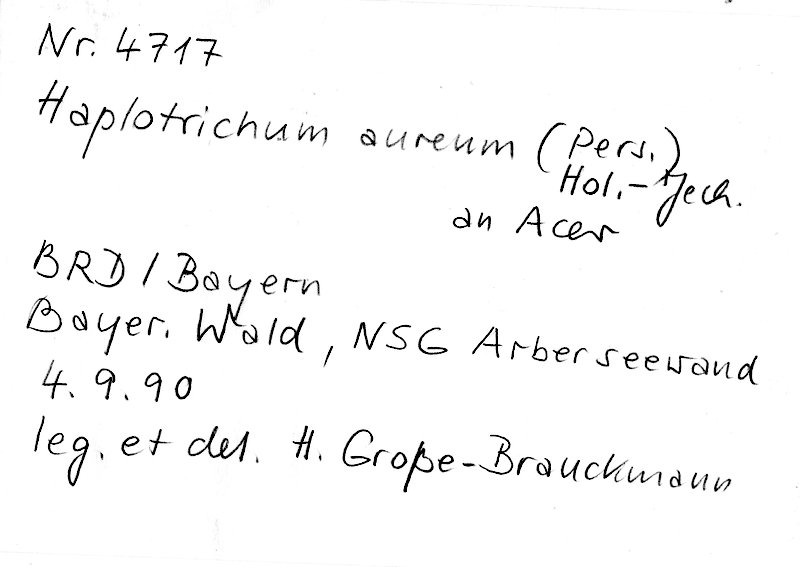 Nr. 4717
Haplotrichum aureum (Pers.)
Hol.-Jech.
an Acer
BRD / Bayern
Bayer. Wald, NSG Arberseewand
4. 9. 90
leg. et det. H. Große-Brauckmann